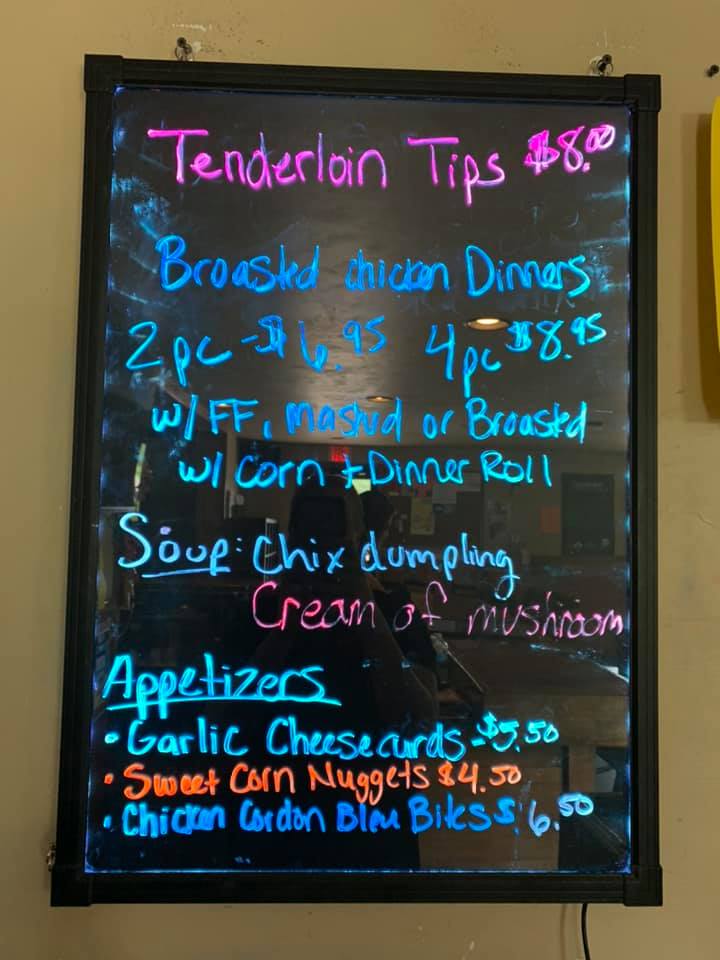 Tenderloin Tips $8.00
Broasted chicken Dinners
2pc - $6.95 4pc $8.95
w/ FF, Mashed or Broasted
w/ Corn + Dinner Roll
Soup: Chix dumpling
Cream of mushroom
Appetizers
• Garlic Cheesecurds - $5.50
• Sweet Corn Nuggets $4.50
• Chicken Cordon Bleu Bites $6.50